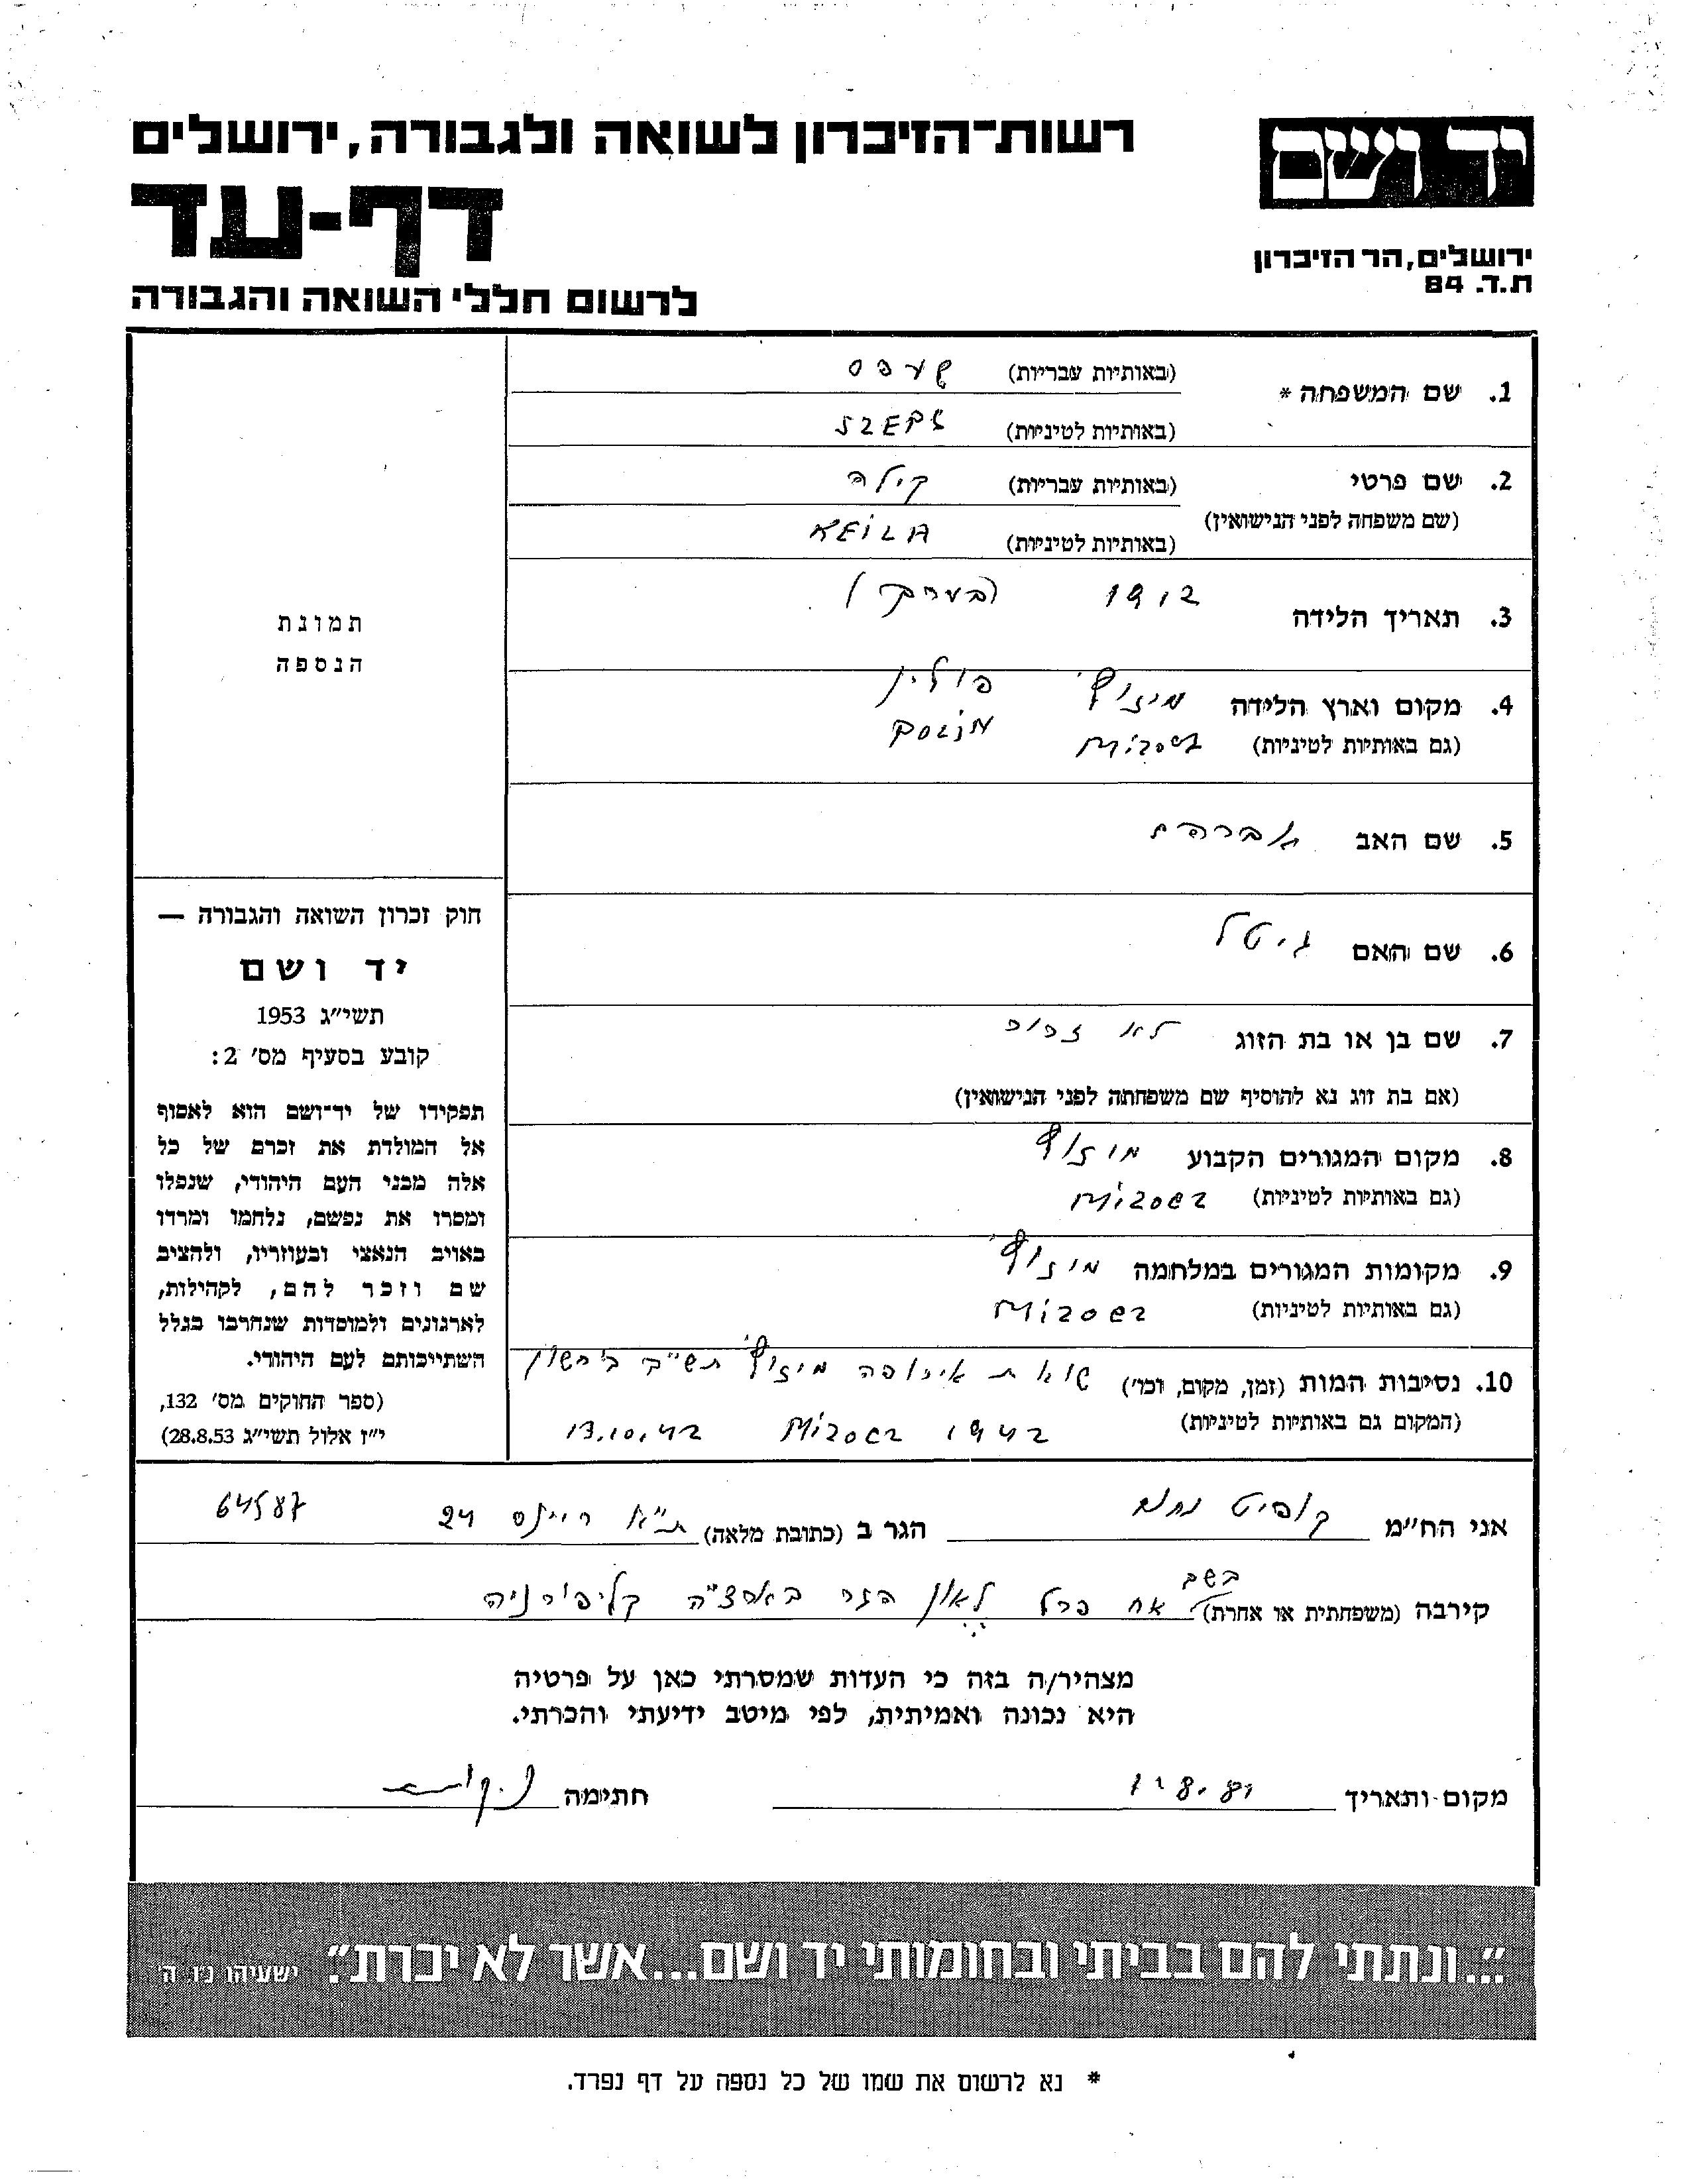 יד ושם
רשות־הזיכרון לשואה ולגבורה, ירושלים
דף-עד
ירושלים, הר הזיכרון
ת.ד. 84
לרשום חללי השואה והגבורה
1. שם המשפחה * (באותיות עבריות) שעפס
(באותיות לטיניות) SZEPS
2. שם פרטי (באותיות עבריות) קילה
(שם משפחה לפני הנישואין) (באותיות לטיניות) KEILA
3. תאריך הלידה 1912 (בערך)
4. מקום וארץ הלידה מיזוץ' פולין
(גם באותיות לטיניות) Mizocz POLIN
5. שם האב אברהם
6. שם האם גיטל
7. שם בן או בת הזוג לא זכור
(אם בת זוג נא להוסיף שם משפחתה לפני הנישואין)
8. מקום המגורים הקבוע מיזוץ'
(גם באותיות לטיניות) Mizocz
9. מקומות המגורים במלחמה מיזוץ'
(גם באותיות לטיניות) Mizocz
10. נסיבות המות (זמן, מקום, וכו') שואת אירופה מיזוץ' תש"ב ב'חשון
(המקום גם באותיות לטיניות) 1942 Mizocz 13.10.42
תמונת
הנספה
חוק זכרון השואה והגבורה —
יד ושם
תשי"ג 1953
קובע בסעיף מס' 2:
תפקידו של יד־ושם הוא לאסוף
אל המולדת את זכרם של כל
אלה מבני העם היהודי, שנפלו
ומסרו את נפשם, נלחמו ומרדו
באויב הנאצי ובעוזריו, ולהציב
שם וזכר להם, לקהילות,
לארגונים ולמוסדות שנחרבו בגלל
השתייכותם לעם היהודי.
(ספר החוקים מס' 132,
י"ז אלול תשי"ג 28.8.53)
אני הח"מ קופיט נחום הגר ב (כתובת מלאה) ת"א ריינס 24 64587
קירבה (משפחתית או אחרת) בשב' אח פרל לאון הגר בארצ"ה קליפורניה
מצהיר/ה בזה כי העדות שמסרתי כאן על פרטיה
היא נכונה ואמיתית, לפי מיטב ידיעתי והכרתי.
מקום ותאריך 8.81 חתימה
"...ונתתי להם בביתי ובחומותי יד ושם...אשר לא יכרת". ישעיהו נ"ו ה'
* נא לרשום את שמו של כל נספה על דף נפרד.